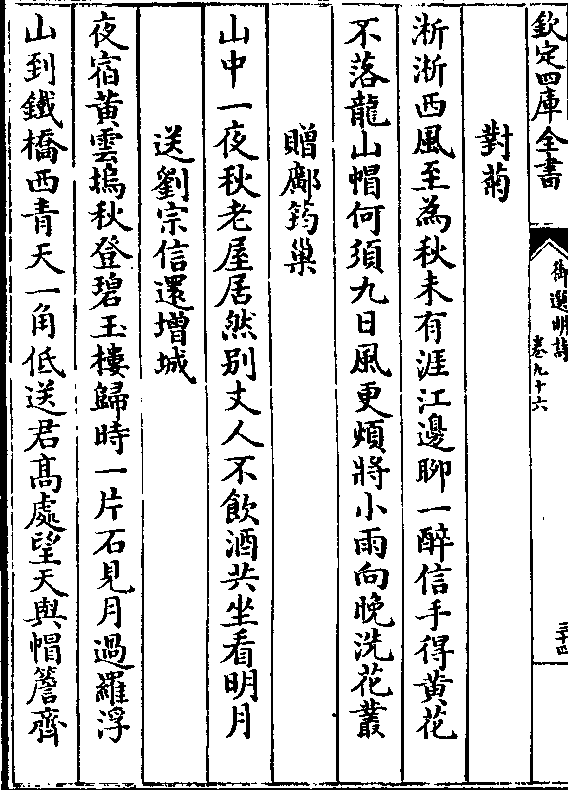 欽定四庫全書
御選明詩
卷九十六
三十四
對菊
淅淅西風至為秋未有涯江邊聊一醉信手得黄花
不落龍山帽何須九日風更煩將小雨向晚洗花叢
贈鄺筠巢
山中一夜秋老屋居然别丈人不飲酒共坐看明月
送劉宗信還增城
夜宿黄雲塢秋登碧玉樓歸時一片石見月過羅浮
山到鐵橋西青天一角低送君髙處望天與帽簷齊